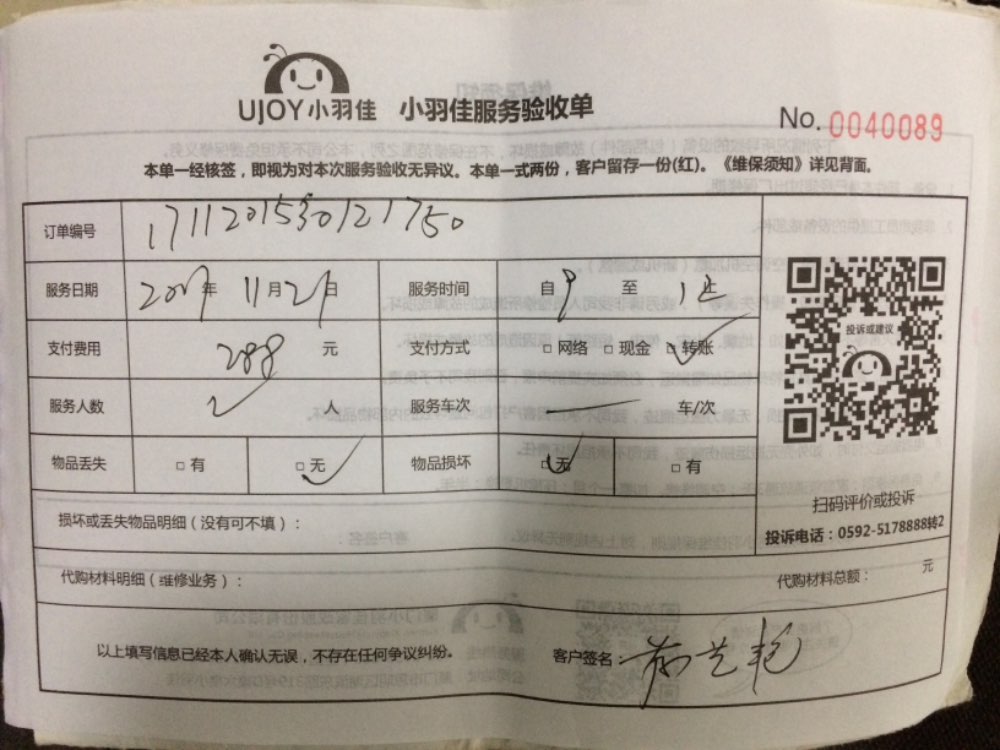 UJOY小羽佳 小羽佳服务验收单
No. 0040089
本单一经核签，即视为对本次服务验收无异议。本单一式两份，客户留存一份(红)。《维保须知》详见背面。
订单编号 1711201530121750
服务日期 2017年 11月21日 服务时间 自9 至 12
支付费用 288 元 支付方式 □网络 □现金 □转账
服务人数 2 人 服务车次 — 车/次
物品丢失 □有 □无 物品损坏 □无 □有
投诉或建议
扫码评价或投诉
投诉电话：0592-5178888转2
损坏或丢失物品明细（没有可不填）：
代购材料明细（维修业务）： 代购材料总额： 元
以上填写信息已经本人确认无误，不存在任何争议纠纷。 客户签名